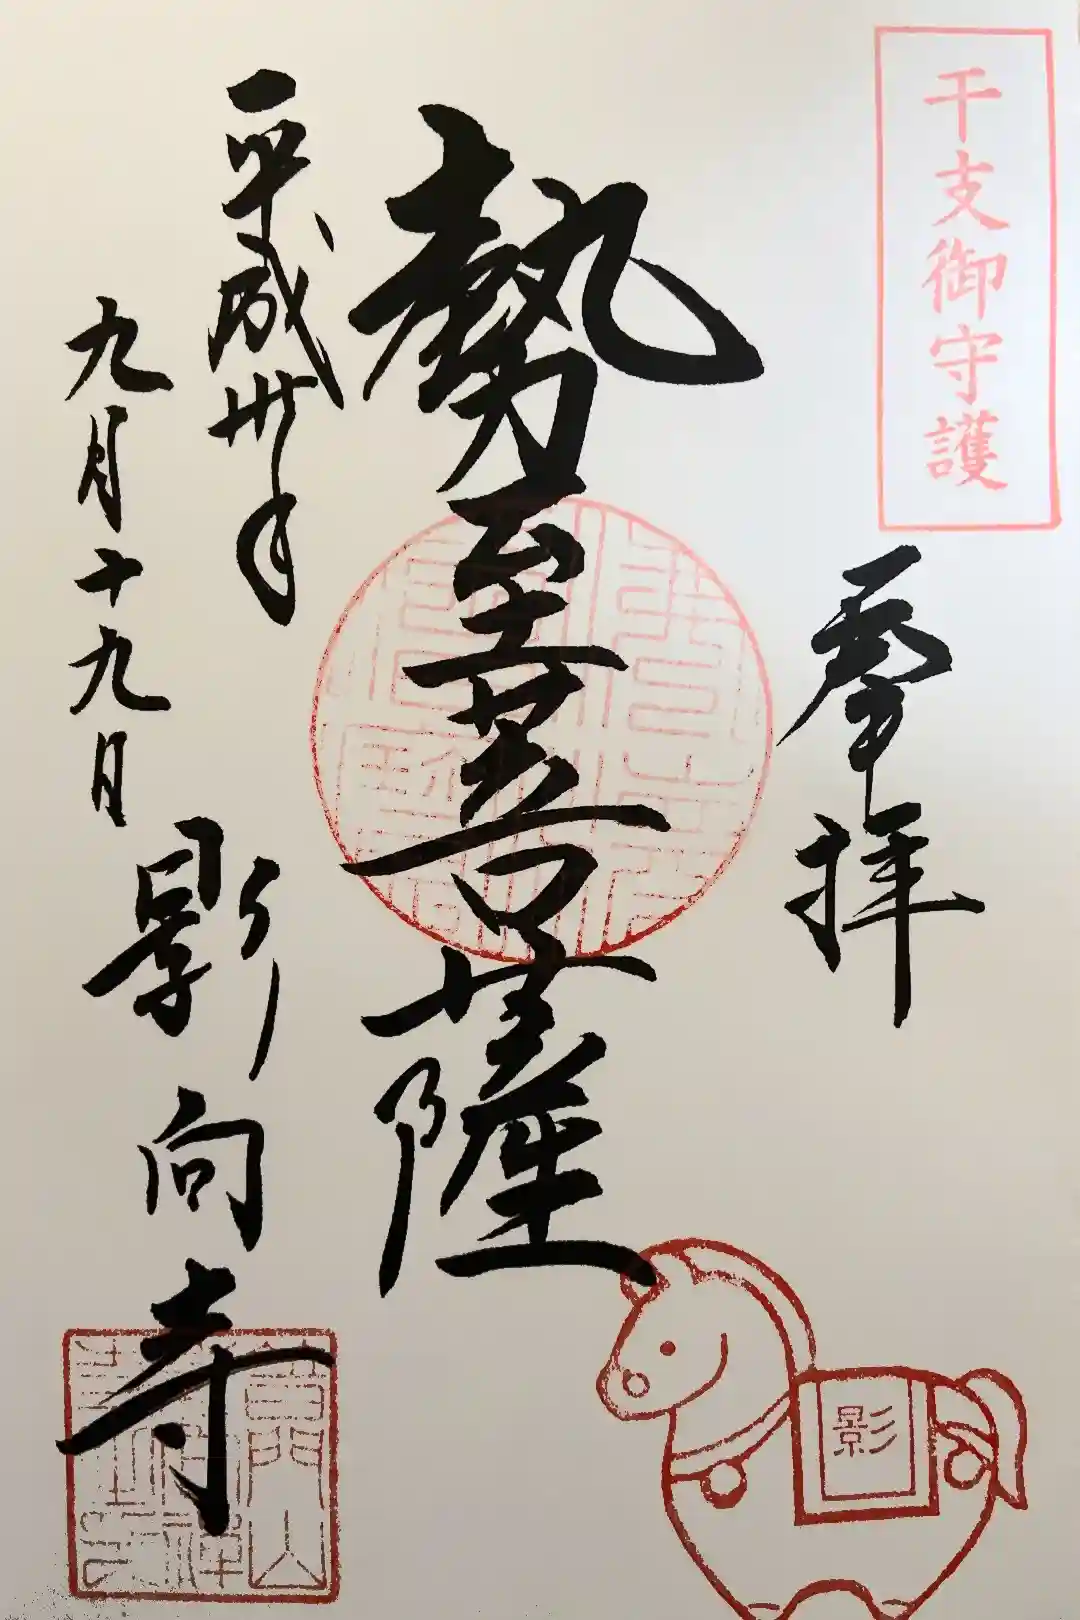 干支御守護
奉拝
勢至菩薩
平成卅年
九月十九日
影向寺
影